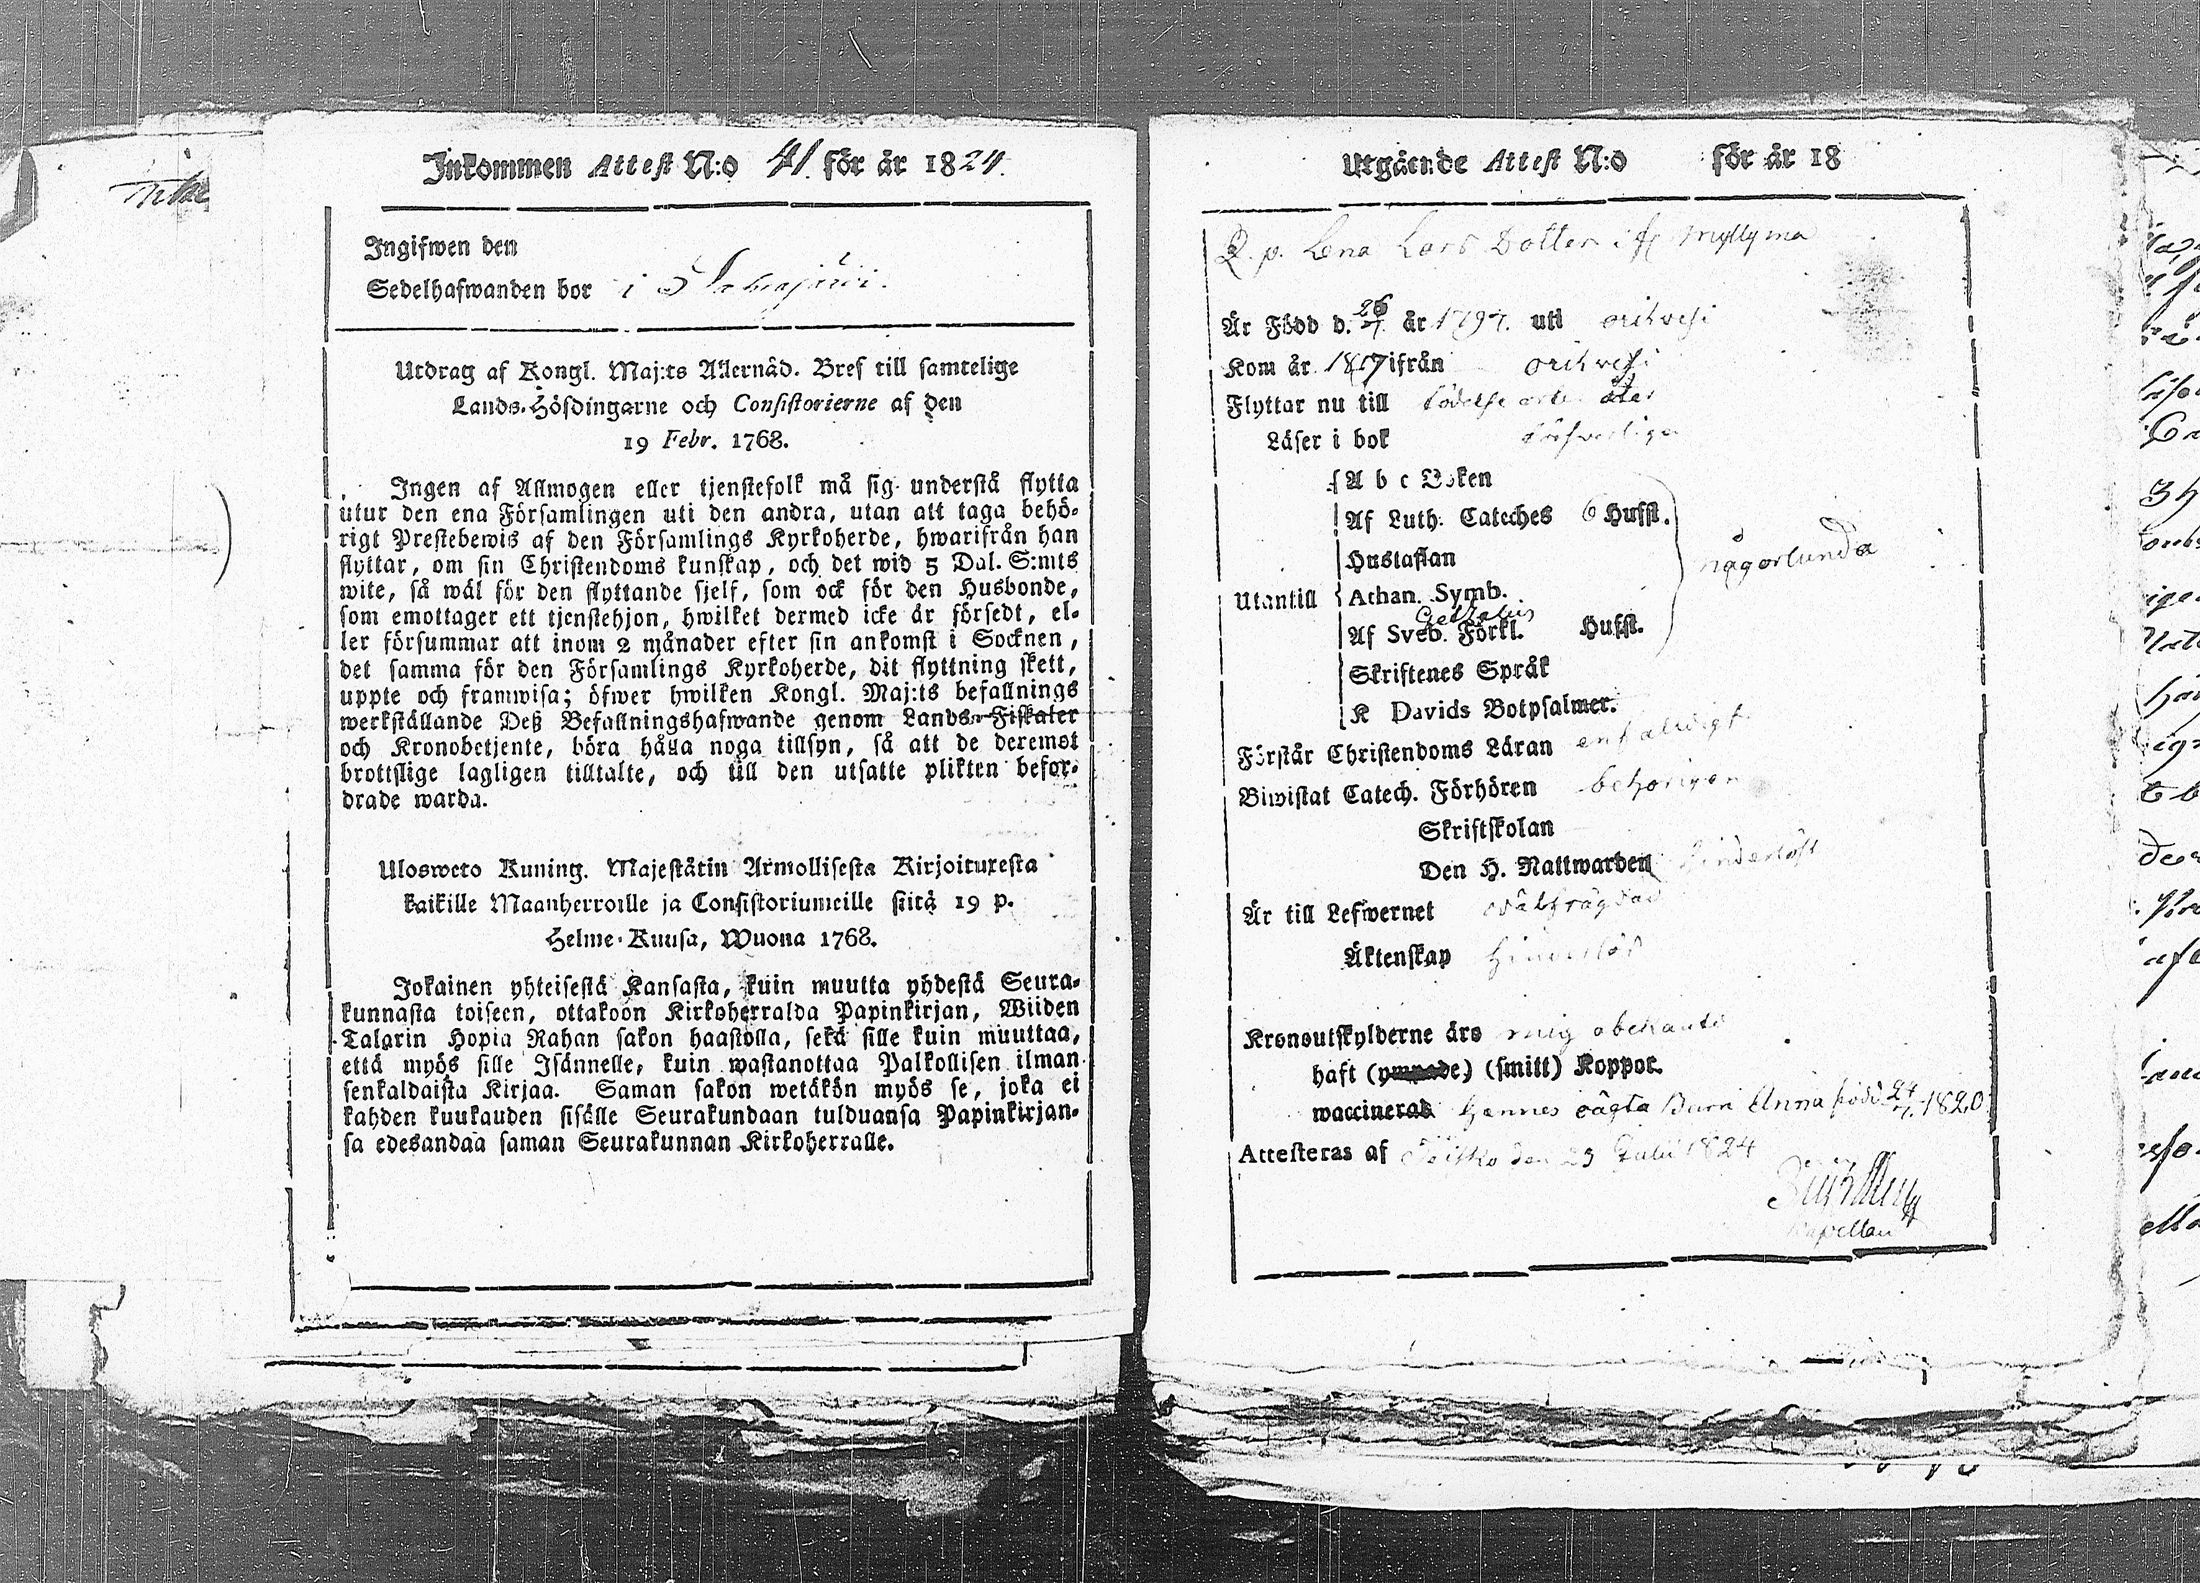 Inkommen Attest N:o 41. för år 1824.
Ingifwen den
Sedelhafwanden bor i
Utdrag af Kongl. Maj:ts Allernåd. Bref till samtelige
Lands-Höfdingarne och Consistorierne af den
19 Febr. 1768.
Ingen af Allmogen eller tjenstefolk må sig understå flytta
utur den ena Församlingen uti den andra, utan att taga behö-
rigt Prestebewis af den Församlings Kyrkoherde, hwarifrån han
flyttar, om sin Christendoms kunskap, och det wid 5 Dal. S:mts
wite, så wäl för den flyttande sjelf, som ock för den Husbonde,
som emottager ett tjenstehjon, hwilket dermed icke är försedt, el-
ler försummar att inom 2 månader efter sin ankomst i Socknen,
det samma för den Församlings Kyrkoherde, dit flyttning skett,
uppte och framwisa; öfwer hwilken Kongl. Maj:ts befallnings
werkställande Deß Befallningshafwande genom Lands-Fiskaler
och Kronobetjente, böra hålla noga tillsyn, så att de deremot
brottslige lagligen tilltalte, och till den utsatte plikten befor-
drade warda.
Ulosweto Kuning. Majestätin Armollisesta Kirjoituxesta
kaikille Maanherroille ja Consistoriumeille siitä 19 p.
Helme-Kuusa, Wuona 1768.
Jokainen yhteisestä Kansasta, kuin muutta yhdestä Seura-
kunnasta toiseen, ottakoon Kirkoherralda Papinkirjan, Wiiden
Talarin Hopia Rahan sakon haastolla, sekä sille kuin muuttaa,
että myös sille Isännelle, kuin wastanottaa Palkollisen ilman
senkaldaista Kirjaa. Saman sakon wetäkön myös se, joka ei
kahden kuukauden sisälle Seurakundaan tulduansa Papinkirjan-
sa edesandaa saman Seurakunnan Kirkoherralle.
Utgående Attest N:o för år 18
P. p. Lena Lars Dotter ifr Myllyma
Är Född d. 26/7. år 1797. uti orihvesi
Kom år 1817 ifrån orihvesi
Flyttar nu till födelse orten åter
Läser i bok
A b c Boken
Af Luth. Cateches 6 Hufst.
Hustaflan
någorlunda
Utantill Athan. Symb.
Af Sveb. Förkl. Hufst.
Skriftenes Språk
K Davids Botpsalmer.
Förstår Christendoms Läran enfaldigt
Biwistat Catech. Förhören behörigen
Skriftskolan
Den H. Nattwarden
Är till Lefwernet wälfrägdad
Äktenskap hinderlös
Kronoutskylderne äro mig obekante
haft (ympade) (smitt) Koppor.
waccinerad hennes oägta Barn Anna född 24/7 1820.
Attesteras af Teisko den 23 Julii 1824
Kapellan